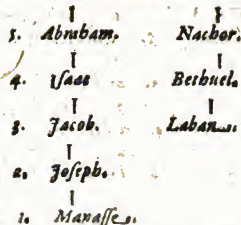 5. Abraham. Nachor.
4. Iſaac Bethuel.
3. Jacob. Laban.
2. Joſeph.
1. Manaſſe.